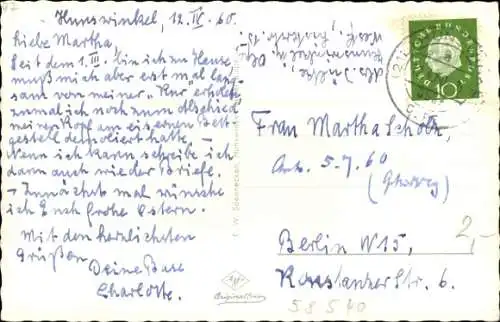 Hunswinkel, 12.IV.60.
Liebe Martha,
Seit dem 1.III. bin ich zu Hause
muß mich aber erst mal lang-
sam von meiner "Kur" erholen
zumal ich noch zum Abschied
meinen Kopf am eisernen Bett-
gestell demoliert hatte. –
Wenn ich kann, schreibe ich
dann auch wieder Briefe. –
Zunächst mal wünsche
ich Euch frohe Ostern. –
Mit den herzlichsten
Grüßen
Deine Base
Charlotte.
DEUTSCHE BUNDESPOST
10
Frau Martha Scholz,
Ant. 5.7.60
Berlin W15,
Konstanzer Str. 6.
2,-
58540
Agfa